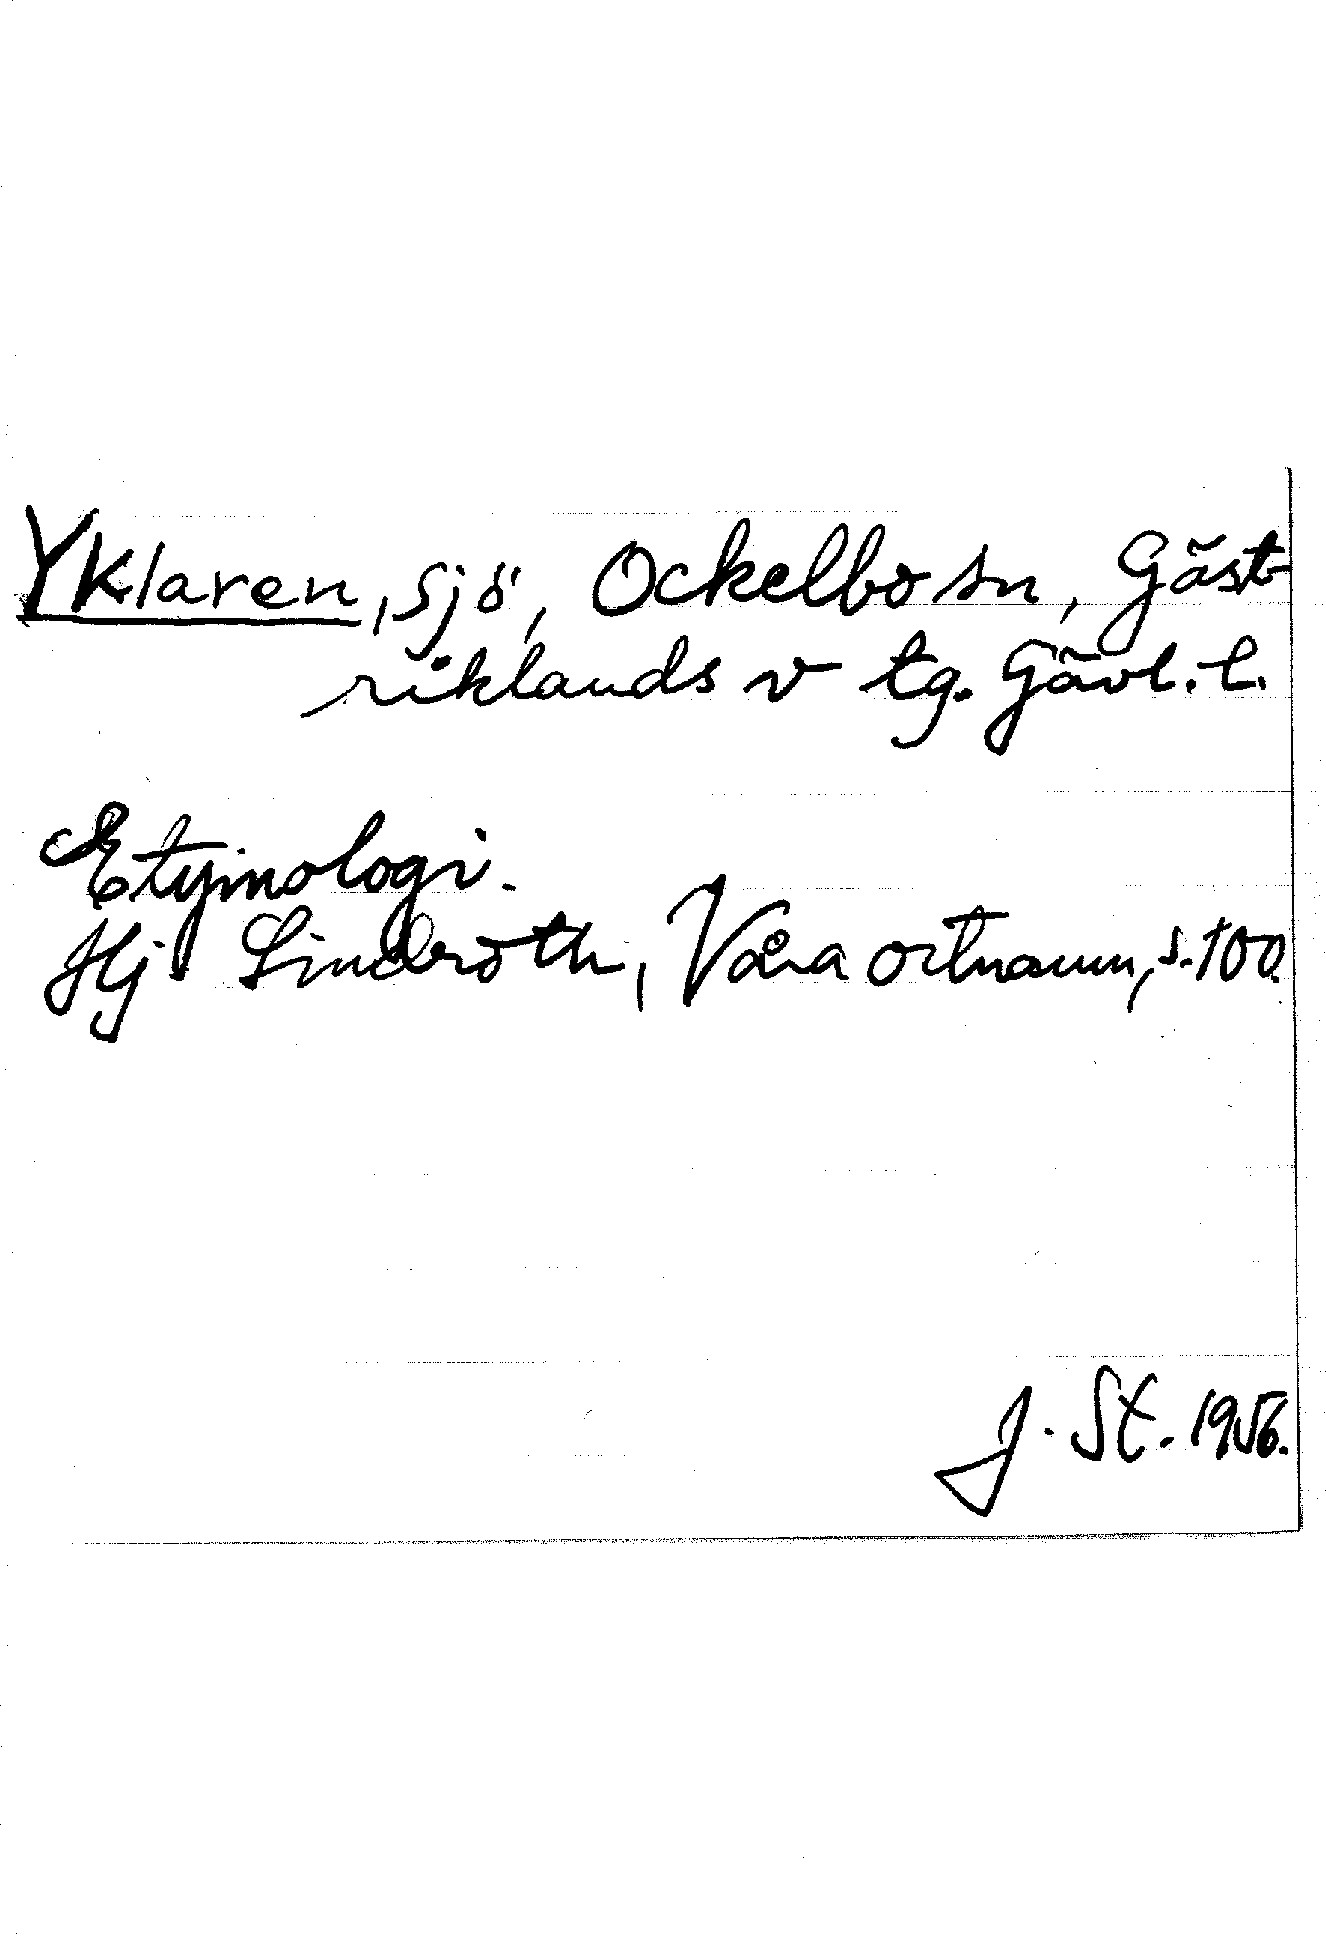 Yklaren, sjö, Ockelbo sn, Gäst-
riklands v tg. Gävl. l.
Etymologi.
Hj. Lindroth, Våra ortnamn, s. 100.
J. St. 1956.